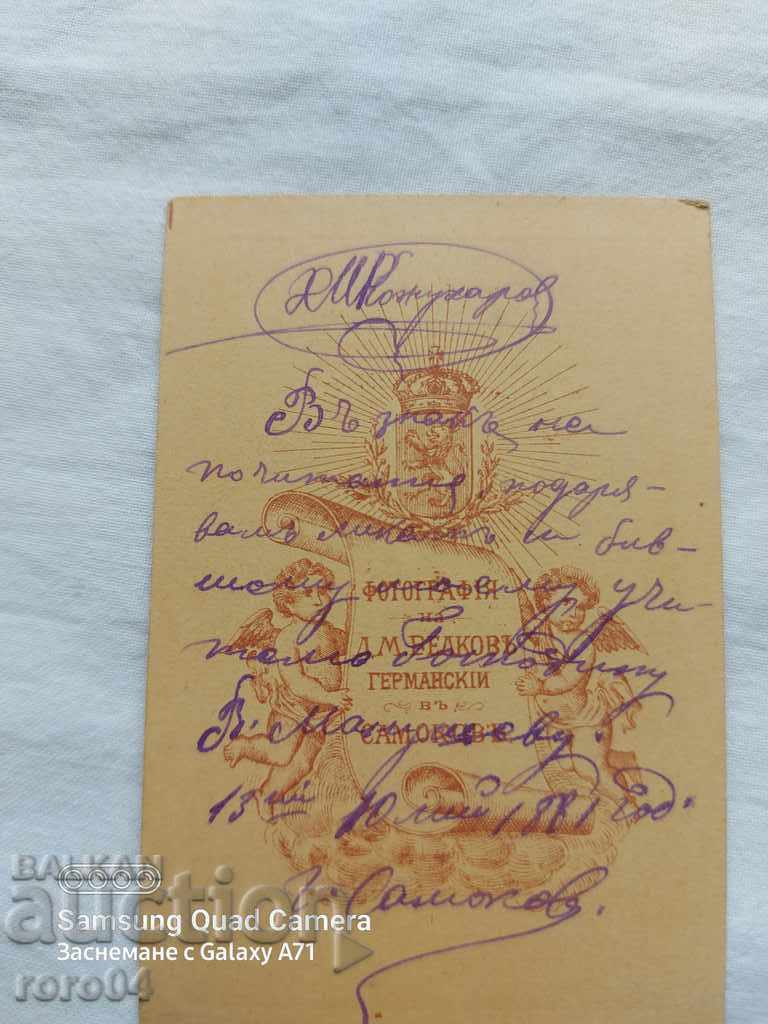 ХМКожухаров
Въ знакъ на
почитание, подаря-
вамъ ликътъ си бив-
шому моему учи-
телю Господину
В. Манчеву.
13ий Юлий 1881 год:
Г. Самоков.
ФОТОГРАФИЯ
на
Д. М. ВЕЛКОВЪ
ГЕРМАНСКІЙ
ВЪ
САМОКОВЪ
BALKAN
auction
Samsung Quad Camera
Заснемане с Galaxy A71
roro04